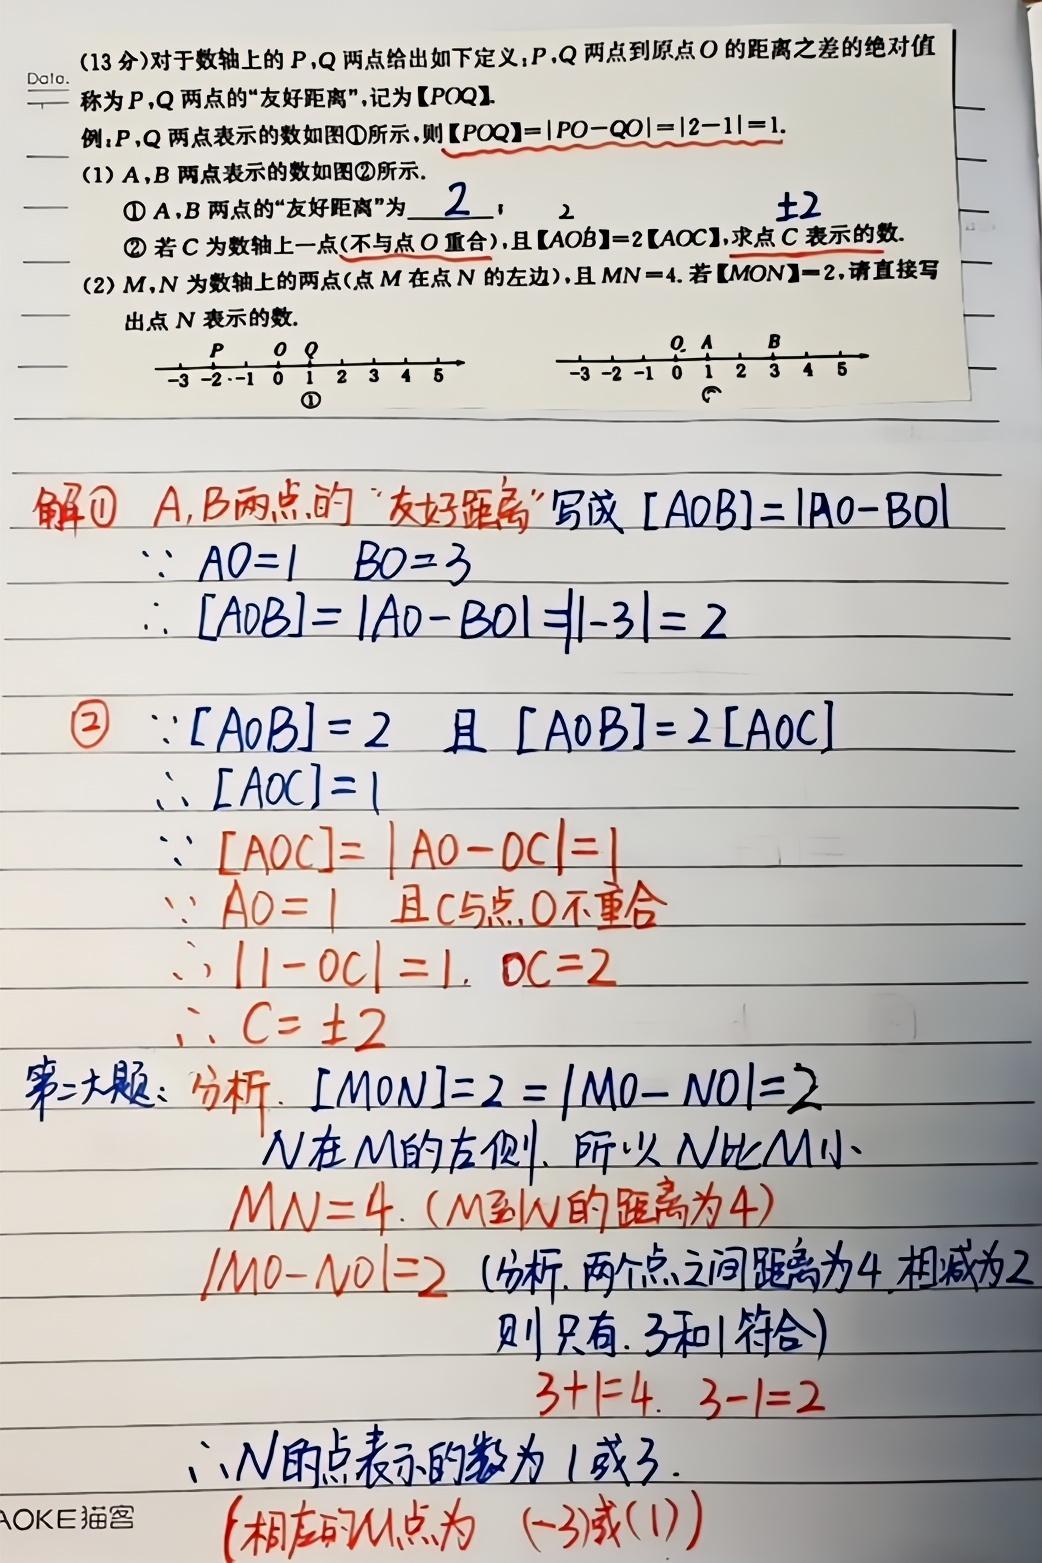 (13分)对于数轴上的P,Q两点给出如下定义:P,Q两点到原点O的距离之差的绝对值
Date.
称为P,Q两点的“友好距离”,记为【POQ】.
例:P,Q两点表示的数如图①所示,则【POQ】=|PO-QO|=|2-1|=1.
(1) A,B两点表示的数如图②所示.
① A,B两点的“友好距离”为 2 ; 2 ±2
② 若C为数轴上一点(不与点O重合),且【AOB】=2【AOC】,求点C表示的数.
(2) M,N为数轴上的两点(点M在点N的左边),且MN=4.若【MON】=2,请直接写
出点N表示的数.
P O Q
-3 -2 -1 0 1 2 3 4 5
①
O A B
-3 -2 -1 0 1 2 3 4 5
解① A,B两点的“友好距离”写成 [AOB]=|AO-BO|
∵ AO=1 BO=3
∴ [AOB]=|AO-BO|=|1-3|=2
② ∵[AOB]=2 且 [AOB]=2[AOC]
∴ [AOC]=1
∵ [AOC]=|AO-OC|=1
∵ AO=1 且C与点O不重合
∴ |1-OC|=1. OC=2
∴ C=±2
第二大题: 分析. [MON]=2=|MO-NO|=2
N在M的左侧, 所以N比M小、
MN=4. (M到N的距离为4)
|MO-NO|=2 (分析.两个点之间距离为4.相减为2
则只有.3和1符合)
3+1=4. 3-1=2
∴N的点表示的数为1或3.
(相应的M点为 (-3)或(1))
AOKE猫客